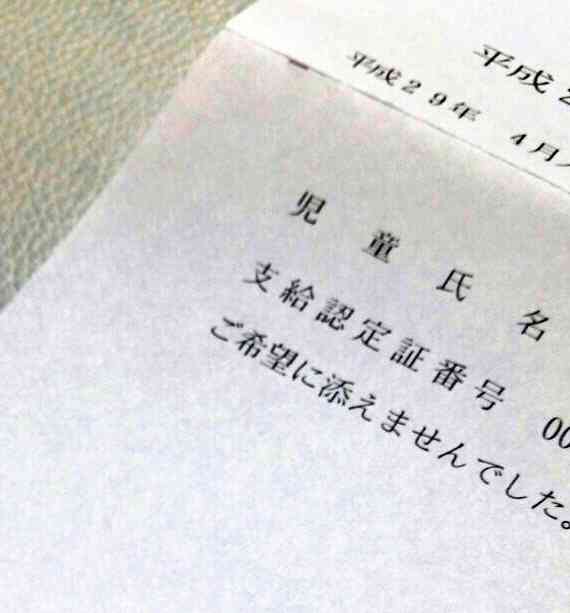 平成2
平成29年 4月入
児童氏名
支給認定証番号 00
ご希望に添えませんでした。